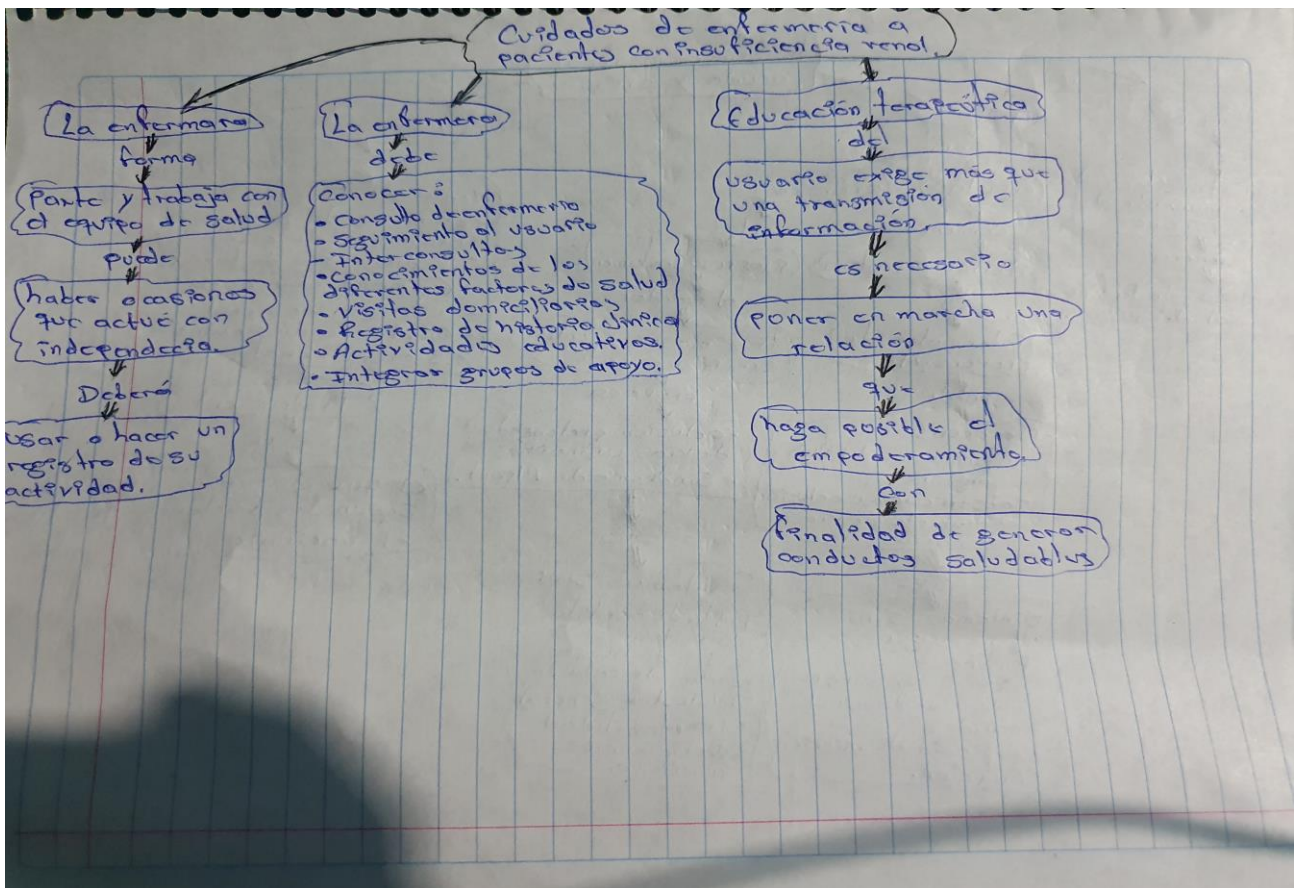 Cuidados de enfermería a
pacientes con insuficiencia renal.
La enfermara
forma
Parte y trabaja con
el equipo de salud
puede
haber ocasiones
que actué con
independecia.
Deberá
usar o hacer un
registro de su
actividad.
La enfermera
debe
Conocer:
• Consulta de enfermeria
• Seguimiento al usuario
- Interconsultas
• Conocimientos de los
diferentes factores de salud
• Visitas domiciliarias
• Registro de historia clinica
• Actividades educativas.
• Integrar grupos de apoyo.
Educación terapeútica
del
usuario exige más que
una transmisión de
información
es necesario
poner en marcha una
relación
que
haga posible el
empoderamiento.
Con
finalidad de generar
conductas saludables